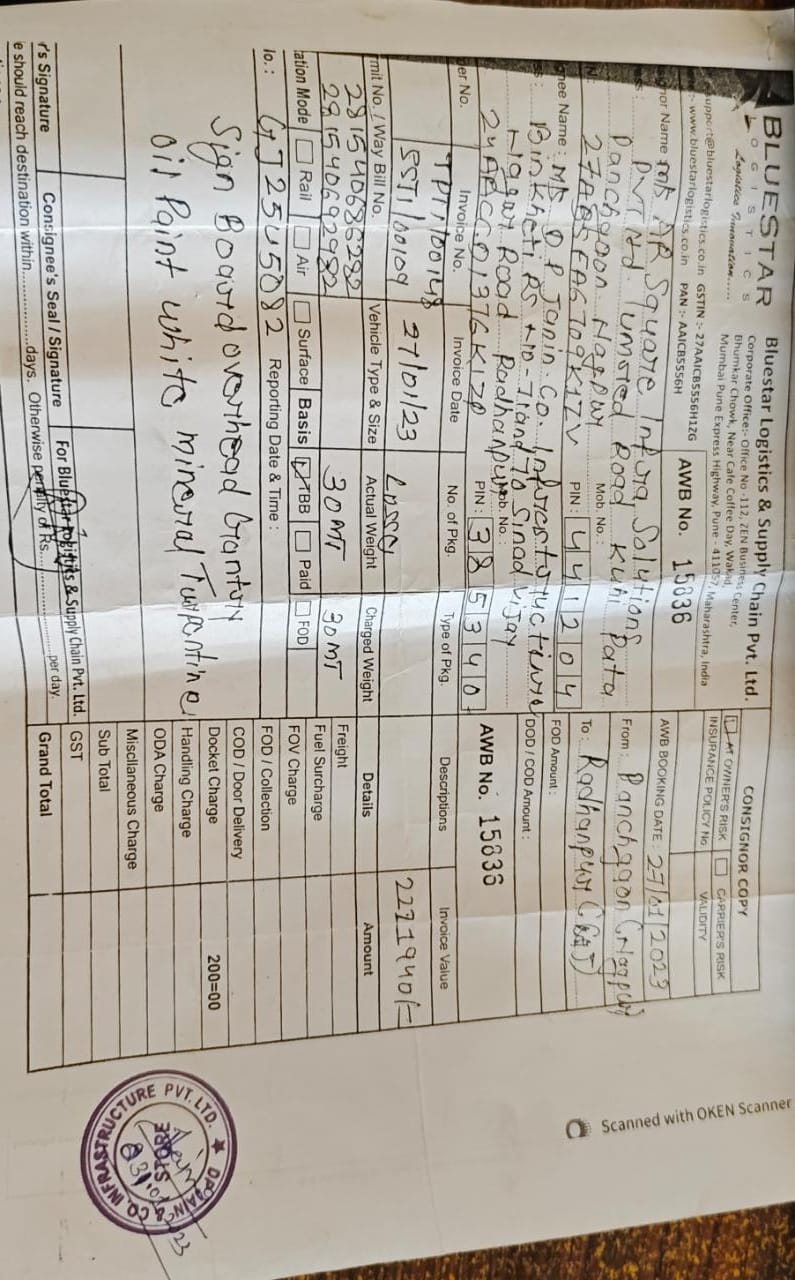 BLUESTAR
LOGISTICS
Logistics Innovation......
Bluestar Logistics & Supply Chain Pvt. Ltd.
Corporate Office:- Office No -112, ZEN Business Center,
Bhumkar Chowk, Near Cafe Coffee Day, Wakad,
Mumbai Pune Express Highway, Pune - 411057, Maharashtra, India
support@bluestarlogistics.co.in GSTIN :- 27AAICB5556H1ZG
:- www.bluestarlogistics.co.in PAN :- AAICB5556H
AWB No. 15836
CONSIGNOR COPY
AT OWNER'S RISK CARRIER'S RISK
INSURANCE POLICY No. VALIDITY
AWB BOOKING DATE : 27/01/2023
nor Name M/s AR Square Infra Solutions
Pvt Ltd. Umared Road Kuhi Pata
Panchgaon Nagpur Mob. No.
PIN : 441204
From : Panchgaon (Nagpur
To : Radhanpur (GUJ)
nee Name : M/s O P Jain Co. Infrastructure
Binkheti RS No-71 and 70 Sinad Vijay
Nagar Road Radhanpur Mob. No. :
24AACCO1376K1ZP PIN : 385340
FOD Amount :
DOD / COD Amount :
AWB No. 15836
er No. Invoice No. Invoice Date No. of Pkg. Type of Pkg. Descriptions Invoice Value
TPT1/00148
SST1/00109 27/01/23 Loose 2271940/=
rmit No. / Way Bill No. Vehicle Type & Size Actual Weight Charged Weight Details Amount
281540686282
281540692982 30 MT 30 MT Freight
Fuel Surcharge
ation Mode Rail Air Surface Basis TBB Paid FOD FOV Charge
lo. : GJ25U5082 Reporting Date & Time : FOD / Collection
COD / Door Delivery
Sign Board overhead Gantry Docket Charge 200=00
Handling Charge
oil Paint white mineral Turpentine ODA Charge
Miscllaneous Charge
Sub Total
GST
Grand Total
r's Signature Consignee's Seal / Signature For Bluestar Logistics & Supply Chain Pvt. Ltd.
e should reach destination within..............days. Otherwise penalty of Rs...................per day.
INFRASTRUCTURE PVT. LTD.
STORE
Scanned with OKEN Scanner